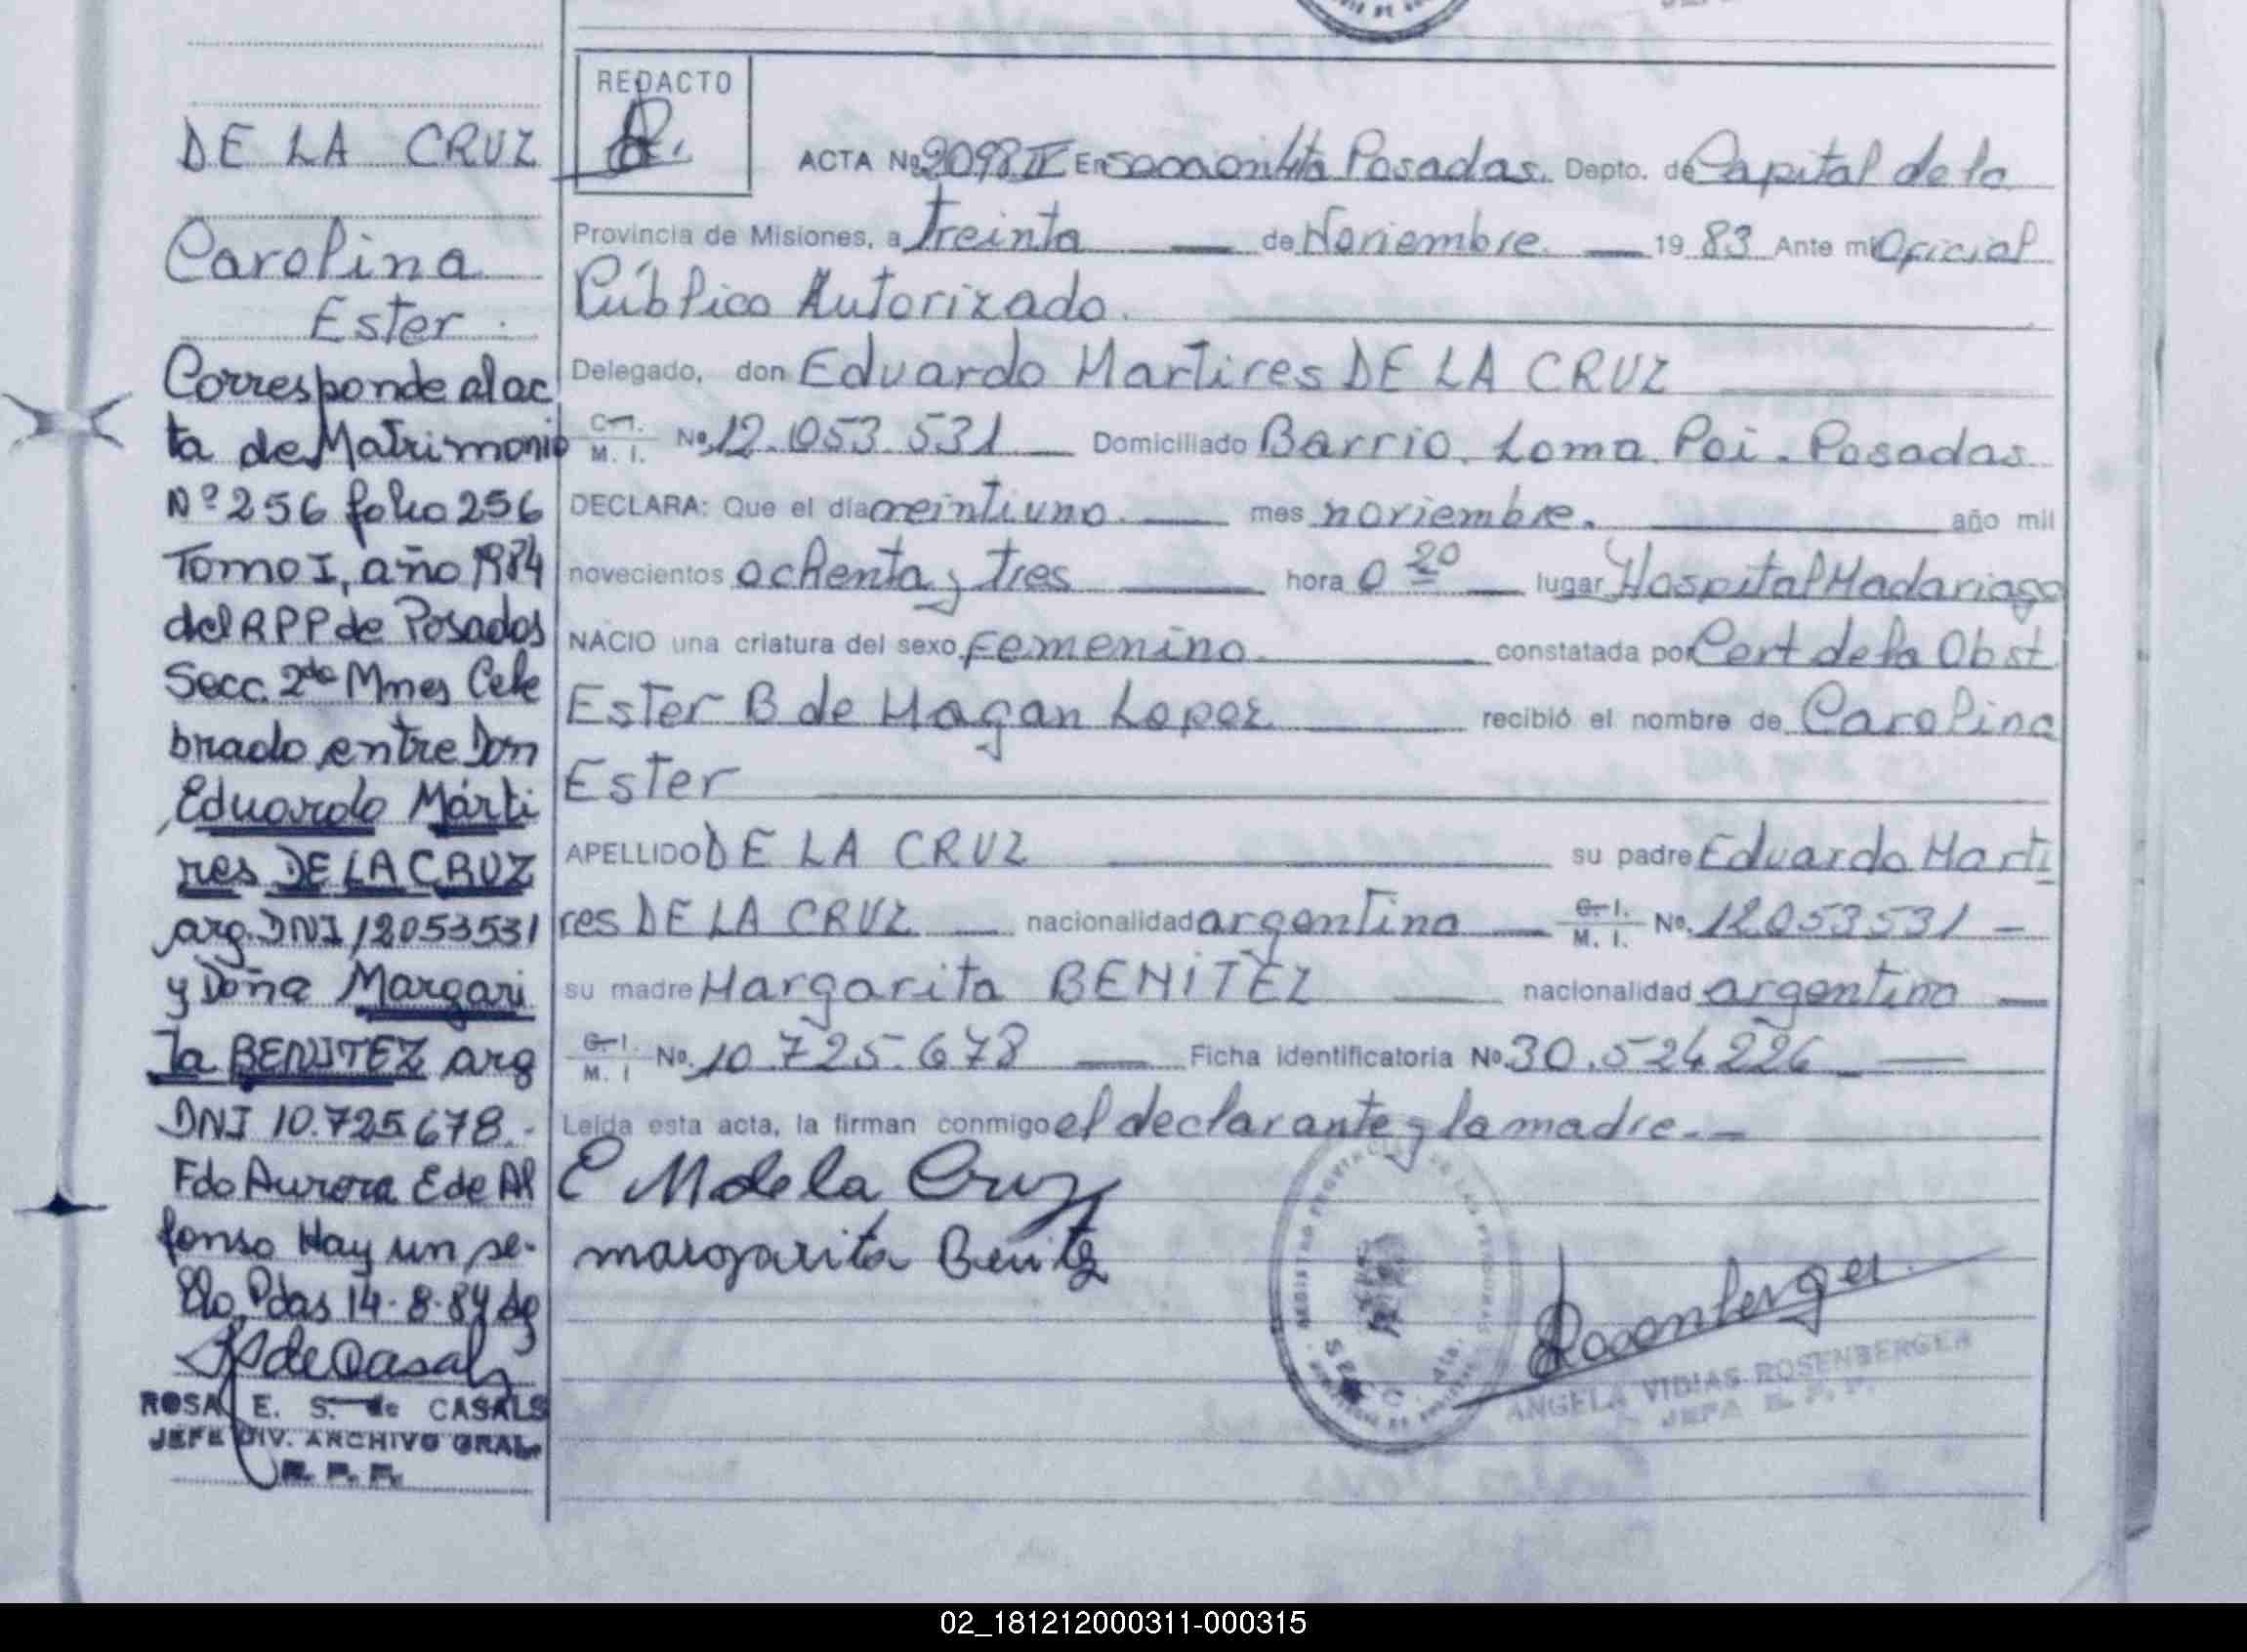 DE LA CRUZ
Carolina
Ester
Corresponde al ac
ta de Matrimonio
Nº 256 folio 256
Tomo I, año 1984
del RPP de Posadas
Secc. 2da Mnes Cele
brado entre Don
Eduardo Márti
res DE LA CRUZ
arg. DNI 12053531
y Doña Margari
ta BENITEZ arg
DNI 10.725.678.-
Fdo Aurora E de Al
fonso Hay un se-
llo, Pdas 14-8-84
ROSA E. S. de CASALS
JEFE DIV. ARCHIVO GRAL.
R. P. P.
REDACTO
ACTA Nº 2098 IV En Posadas. Depto. de Capital de la
Provincia de Misiones, a Treinta de Noviembre 19 83 Ante mi Oficial
Público Autorizado.
Delegado, don Eduardo Martires DE LA CRUZ
C. I. M. I. Nº 12.053.531 Domiciliado Barrio Loma Poi - Posadas
DECLARA: Que el día veintiuno mes noviembre. año mil
novecientos ochenta y tres hora 0 20 lugar Hospital Madariaga
NACIO una criatura del sexo Femenino constatada por Cert de la Obst
Ester B de Magan Lopez recibió el nombre de Carolina
Ester
APELLIDO DE LA CRUZ su padre Eduardo Marti
res DE LA CRUZ nacionalidad argentina C. I. M. I. Nº. 12053531 -
su madre Margarita BENITEZ nacionalidad argentina
C. I. M. I Nº. 10.725.678 Ficha identificatoria Nº 30.524226
Leída esta acta, la firman conmigo el declarante y la madre.-
E M de la Cruz
margarita Benitez
Rosenberger
ANGELA VIDIAS ROSENBERGER
JEFA R. P. P.
02_181212000311-000315